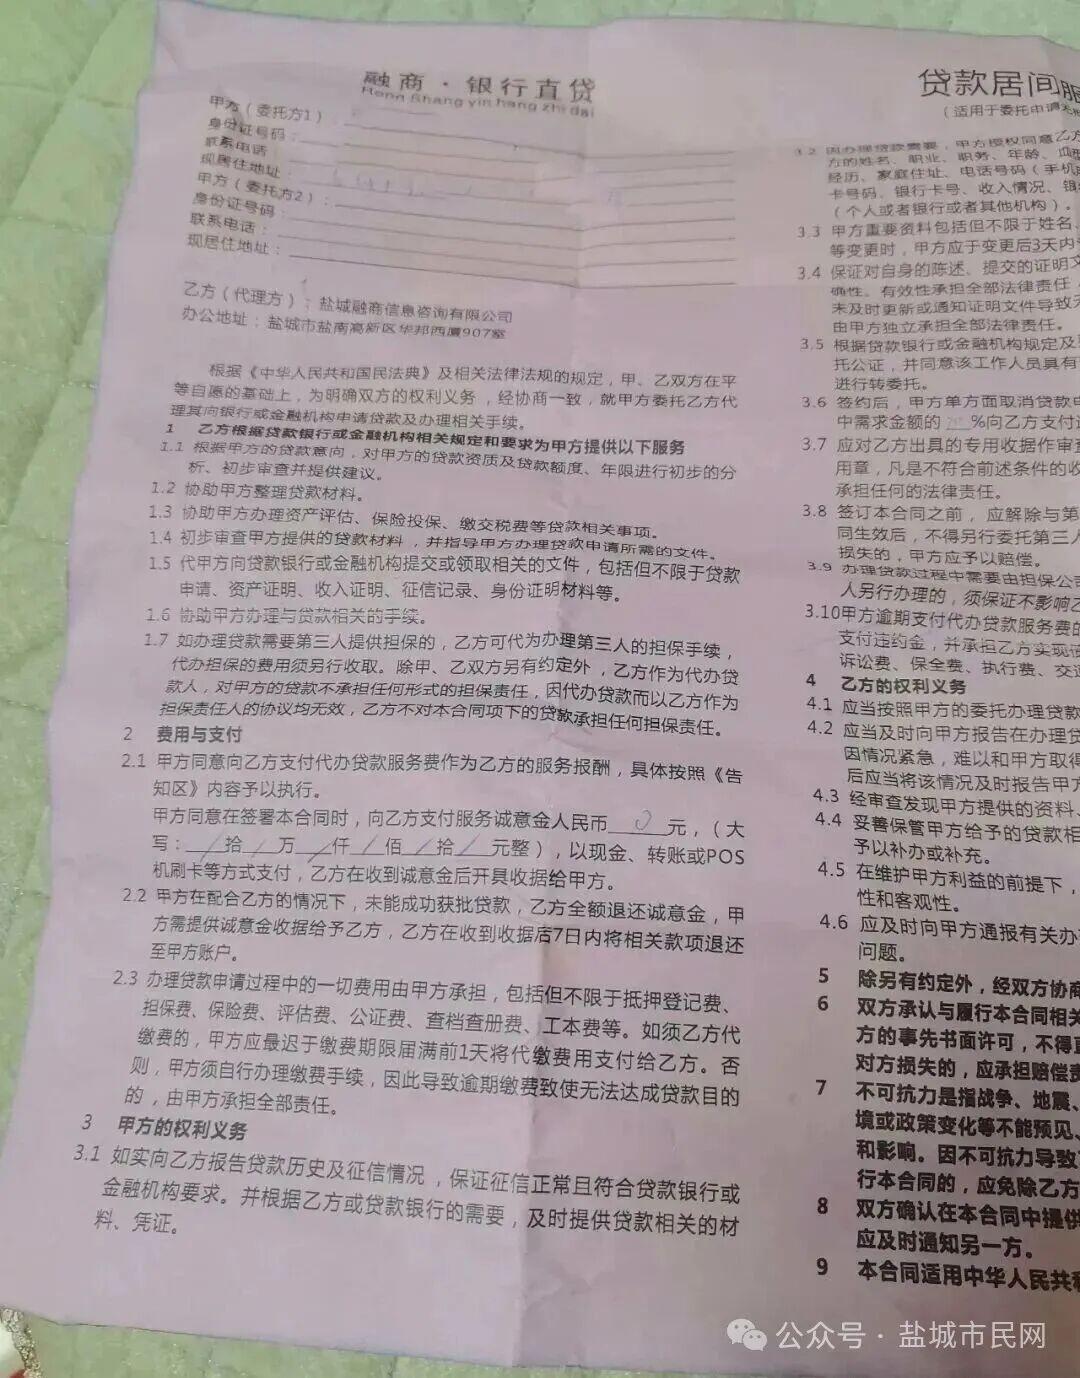 融商·银行直贷
Rong Shang yin hang zhi dai
甲方（委托方1）：
身份证号码：
联系电话：
现居住地址：
甲方（委托方2）：
身份证号码：
联系电话：
现居住地址：
乙方（代理方）：盐城融商信息咨询有限公司
办公地址：盐城市盐南高新区华邦西厦907室
根据《中华人民共和国民法典》及相关法律法规的规定，甲、乙双方在平
等自愿的基础上，为明确双方的权利义务，经协商一致，就甲方委托乙方代
理其向银行或金融机构申请贷款及办理相关手续。
1 乙方根据贷款银行或金融机构相关规定和要求为甲方提供以下服务
1.1 根据甲方的贷款意向，对甲方的贷款资质及贷款额度、年限进行初步的分
析、初步审查并提供建议。
1.2 协助甲方整理贷款材料。
1.3 协助甲方办理资产评估、保险投保、缴交税费等贷款相关事项。
1.4 初步审查甲方提供的贷款材料，并指导甲方办理贷款申请所需的文件。
1.5 代甲方向贷款银行或金融机构提交或领取相关的文件，包括但不限于贷款
申请、资产证明、收入证明、征信记录、身份证明材料等。
1.6 协助甲方办理与贷款相关的手续。
1.7 如办理贷款需要第三人提供担保的，乙方可代为办理第三人的担保手续，
代办担保的费用须另行收取。除甲、乙双方另有约定外，乙方作为代办贷
款人，对甲方的贷款不承担任何形式的担保责任，因代办贷款而以乙方作为
担保责任人的协议均无效，乙方不对本合同项下的贷款承担任何担保责任。
2 费用与支付
2.1 甲方同意向乙方支付代办贷款服务费作为乙方的服务报酬，具体按照《告
知区》内容予以执行。
甲方同意在签署本合同时，向乙方支付服务诚意金人民币 0 元，（大
写：/拾/万/仟/佰/拾/元整），以现金、转账或POS
机刷卡等方式支付，乙方在收到诚意金后开具收据给甲方。
2.2 甲方在配合乙方的情况下，未能成功获批贷款，乙方全额退还诚意金，甲
方需提供诚意金收据给予乙方，乙方在收到收据后7日内将相关款项退还
至甲方账户。
2.3 办理贷款申请过程中的一切费用由甲方承担，包括但不限于抵押登记费、
担保费、保险费、评估费、公证费、查档查册费、工本费等。如须乙方代
缴费的，甲方应最迟于缴费期限届满前1天将代缴费用支付给乙方。否
则，甲方须自行办理缴费手续，因此导致逾期缴费致使无法达成贷款目的
的，由甲方承担全部责任。
3 甲方的权利义务
3.1 如实向乙方报告贷款历史及征信情况，保证征信正常且符合贷款银行或
金融机构要求。并根据乙方或贷款银行的需要，及时提供贷款相关的材
料、凭证。
贷款居间服
（适用于委托申请
3.2 因办理贷款需要，甲方授权同意乙方
方的姓名、职业、职务、年龄、血
经历、家庭住址、电话号码（手机
卡号码、银行卡号、收入情况、银
（个人或者银行或者其他机构）。
3.3 甲方重要资料包括但不限于姓名、
等变更时，甲方应于变更后3天内
3.4 保证对自身的陈述、提交的证明文
确性、有效性承担全部法律责任，
未及时更新或通知证明文件导致
由甲方独立承担全部法律责任。
3.5 根据贷款银行或金融机构规定及
托公证，并同意该工作人员具有
进行转委托。
3.6 签约后，甲方单方面取消贷款申
中需求金额的 %向乙方支付
3.7 应对乙方出具的专用收据作审查
用章，凡是不符合前述条件的收
承担任何的法律责任。
3.8 签订本合同之前，应解除与第
同生效后，不得另行委托第三人
损失的，甲方应予以赔偿。
3.9 办理贷款过程中需要由担保公
人另行办理的，须保证不影响乙
3.10 甲方逾期支付代办贷款服务费的
支付违约金，并承担乙方实现
诉讼费、保全费、执行费、交
4 乙方的权利义务
4.1 应当按照甲方的委托办理贷款
4.2 应当及时向甲方报告在办理贷
因情况紧急，难以和甲方取得
后应当将该情况及时报告甲方
4.3 经审查发现甲方提供的资料、
4.4 妥善保管甲方给予的贷款相
予以补办或补充。
4.5 在维护甲方利益的前提下，
性和客观性。
4.6 应及时向甲方通报有关办
问题。
5 除另有约定外，经双方协商
6 双方承认与履行本合同相关
方的事先书面许可，不得
对方损失的，应承担赔偿责
7 不可抗力是指战争、地震、
境或政策变化等不能预见、
和影响。因不可抗力导致
行本合同的，应免除乙方
8 双方确认在本合同中提供
应及时通知另一方。
9 本合同适用中华人民共和
公众号·盐城市民网